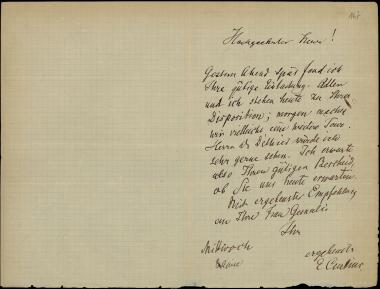 Hochgeehrter Herr!
Gestern Abend spät fand ich
Ihre gütige Einladung. Allen
und ich stehen heute zu Ihrer
Disposition; morgen machen
wir vielleicht eine weitere Tour.
Herrn Dr. würde ich
sehr gerne sehen. Ich erwarte
also Ihren gütigen Bescheid,
ob Sie uns heute erwarten.
Mit ergebenster Empfehlung
an Ihre Frau Gemahlin
Ihr
Mittwoch
ergebenster
E